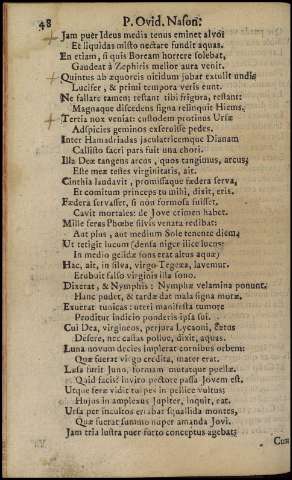 48 P. Ovid. Nason:
Jam puer Ideus media tenus eminet alvo:
Et liquidas misto nectare fundit aquas.
En etiam, si quis Boream horrere solebat,
Gaudeat à Zephiris mellor aura venit.
Quintus ab æquoreis nitidum jubar extulit undis
Lucifer, & primi tempora veris eunt.
Ne fallare tamen; restant tibi frigora, restant:
Magnaque discedens signa relinquit Hiems.
Tertia nox veniat: custodem protinus Ursæ
Adspicies geminos exseruisse pedes.
Inter Hamadriadas jaculatricemque Dianam
Callisto sacri pars fuit una chori.
Illa Deæ tangens arcus, quos tangimus, arcus;
Este meæ testes virginitatis, ait.
Cinthia laudavit, promissaque fœdera serva,
Et comitum princeps tu mihi, dixit, eris.
Fœdera servasset, si non formosa fuisset,
Cavit mortales: de Jove crimen habet.
Mille feras Phœbe silvis venata redibat:
Aut plus, aut medium Sole tenente diem.
Ut tetigit lucum (densa niger ilice lucus:
In medio gelidæ fons erat altus aquæ)
Hac, ait, in silva, virgo Tegeæa, lavemur.
Erubuit falso virginis illa sono.
Dixerat, & Nymphis: Nymphæ velamina ponunt.
Hanc pudet, & tardæ dat mala signa moræ.
Exuerat tunicas: uteri manifesta tumore
Proditur indicio ponderis ipsa sui.
Cui Dea, virgineos, perjura Lycaoni, cœtus
Desere, nec castas pollue, dixit, aquas.
Luna novum decies implerat cornibus orbem:
Quæ fuerat virgo credita, mater erat.
Læsa furit Juno, formam mutatque puellæ.
Quid facis? invito pectore passa Jovem est,
Utque feræ vidit turpes in pellice vultus;
Hujus in amplexus Jupiter, inquit, eat.
Ursa per incultos errabat squallida montes,
Quæ fuerat summo nuper amanda Jovi.
Jam tria lustra puer furto conceptus agebat;
Cum